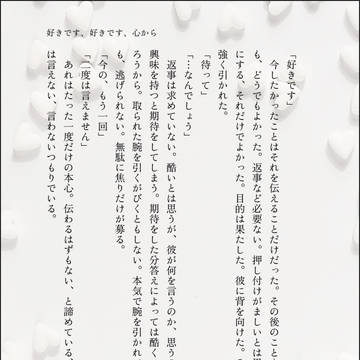 好きです、好きです、心から
「好きです」
　今したかったことはそれを伝えることだけだった。その後のこと
も、どうでもよかった。返事など必要ない。押し付けがましいとは思
にする、それだけでよかった。目的は果たした。彼に背を向けた。
強く引かれた。
「待って」
「…なんでしょう」
　返事は求めていない。酷いとは思うが、彼が何を言うのか、思う
興味を持つと期待をしてしまう。期待をした分答えによっては酷く
ろうから。取られた腕を引くがびくともしない。本気で腕を引かれ
も、逃げられない。無駄に焦りだけが募る。
「今の、もう一回」
「二度は言えません」
　あれはたった一度だけの本心。伝わるはずもない、と諦めている、
は言えない、言わないつもりでいる。